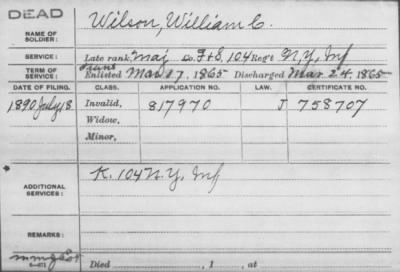 DEAD
NAME OF SOLDIER: Wilson, William C.
SERVICE: Late rank Maj Co. F+S, 104 Reg't N.Y. Inf
TERM OF SERVICE: Enlisted Mar. 17, 1865 Discharged Mar 24, 1865
DATE OF FILING. CLASS. APPLICATION NO. LAW. CERTIFICATE NO.
1890 July 18 Invalid, 817970 J 758707
Widow,
Minor,
ADDITIONAL SERVICES: K. 104 N.Y. Inf
REMARKS:
Died , 1 , at